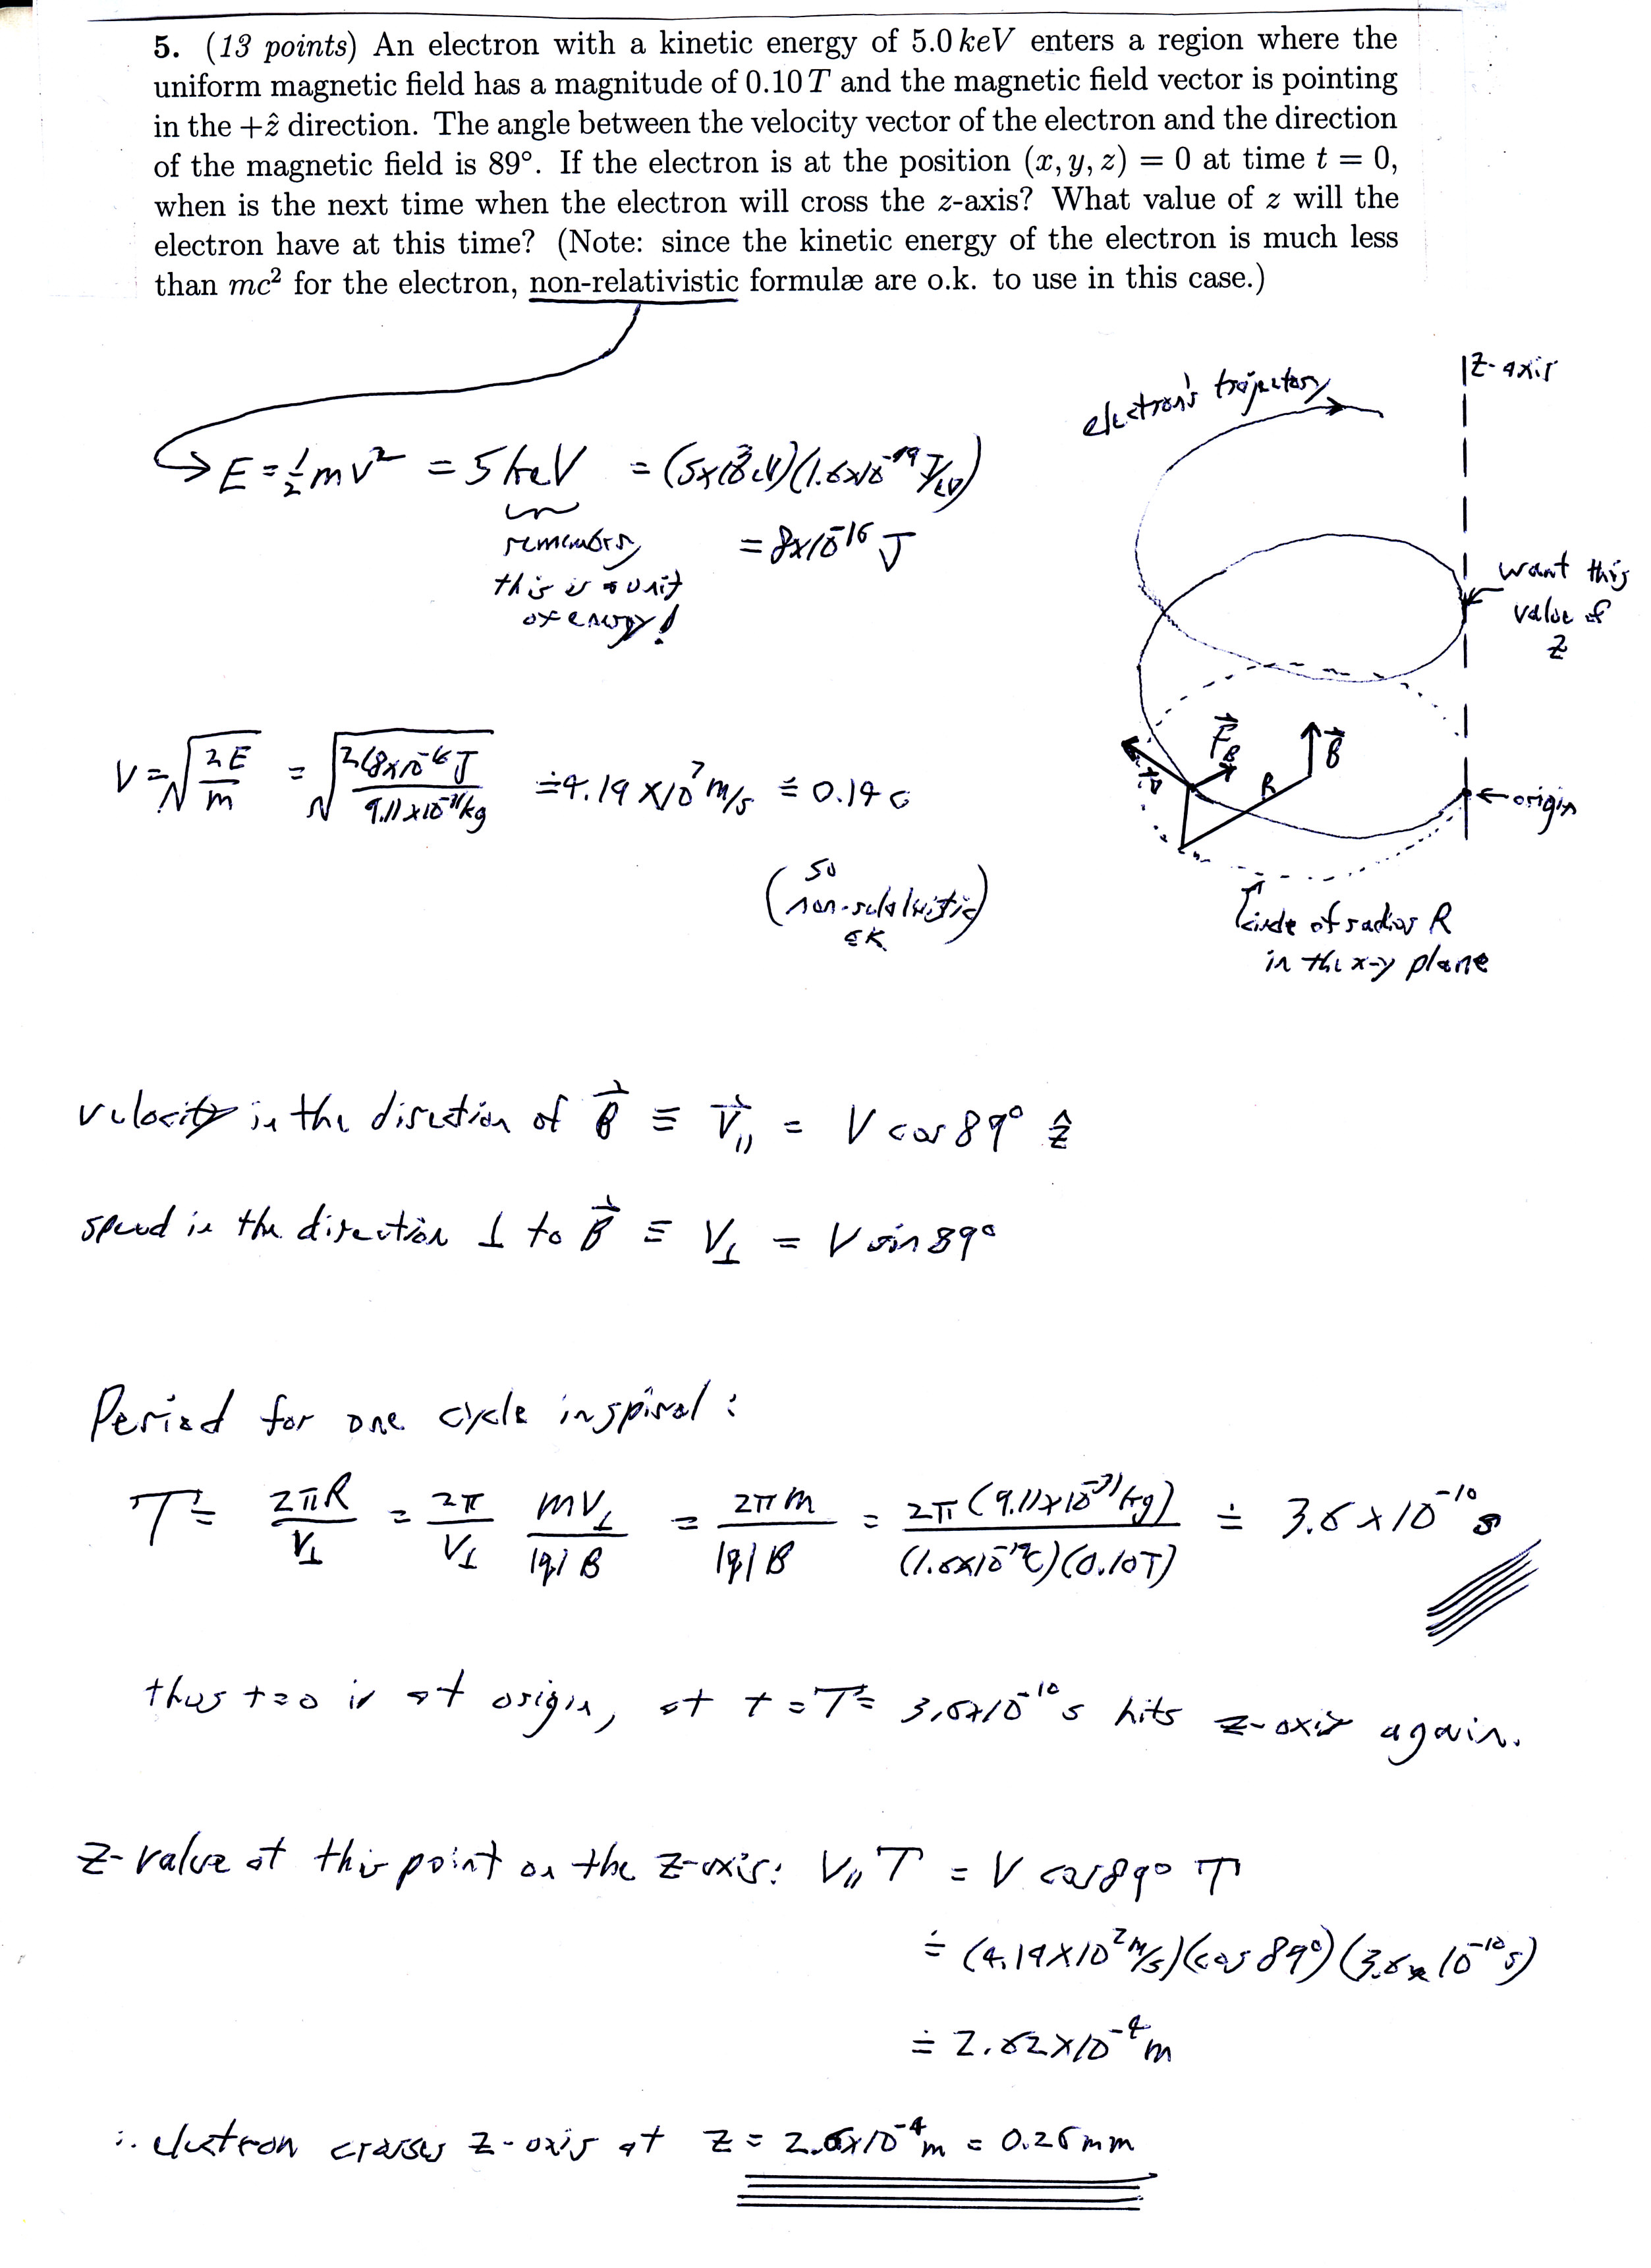 5. (13 points) An electron with a kinetic energy of 5.0 keV enters a region where the
uniform magnetic field has a magnitude of 0.10 T and the magnetic field vector is pointing
in the +ẑ direction. The angle between the velocity vector of the electron and the direction
of the magnetic field is 89°. If the electron is at the position (x, y, z) = 0 at time t = 0,
when is the next time when the electron will cross the z-axis? What value of z will the
electron have at this time? (Note: since the kinetic energy of the electron is much less
than mc² for the electron, non-relativistic formulæ are o.k. to use in this case.)
z-axis
electron's trajectory
E = ½mv² = 5 keV = (5x10³eV)(1.6x10⁻¹⁹ J/eV)
remember,
this is a unit
of energy!
= 8x10⁻¹⁶ J
want this
value of
z
V = √(2E/m) = √(2(8x10⁻¹⁶J)/(9.11x10⁻³¹kg)) ≐ 4.19 x10⁷ m/s ≐ 0.14 c
F⃗_B
B⃗
R
origin
(so
non-relativistic
OK)
circle of radius R
in the x-y plane
velocity in the direction of B⃗ ≡ V⃗_∥ = V cos 89° ẑ
speed in the direction ⊥ to B⃗ ≡ V_⊥ = V sin 89°
Period for one cycle in spiral:
T = 2πR/V_⊥ = 2π/V_⊥ mV_⊥/|q|B = 2πm/|q|B = 2π(9.11x10⁻³¹kg)/(1.6x10⁻¹⁹C)(0.10T) ≐ 3.6 x 10⁻¹⁰ s
thus t=0 is at origin, at t = T = 3.6x10⁻¹⁰ s hits z-axis again.
z-value at this point on the z-axis: V_∥ T = V cos 89° T
≐ (4.19x10⁷ m/s)(cos 89°)(3.6x10⁻¹⁰ s)
≐ 2.62x10⁻⁴ m
∴ electron crosses z-axis at z = 2.6x10⁻⁴ m = 0.26 mm